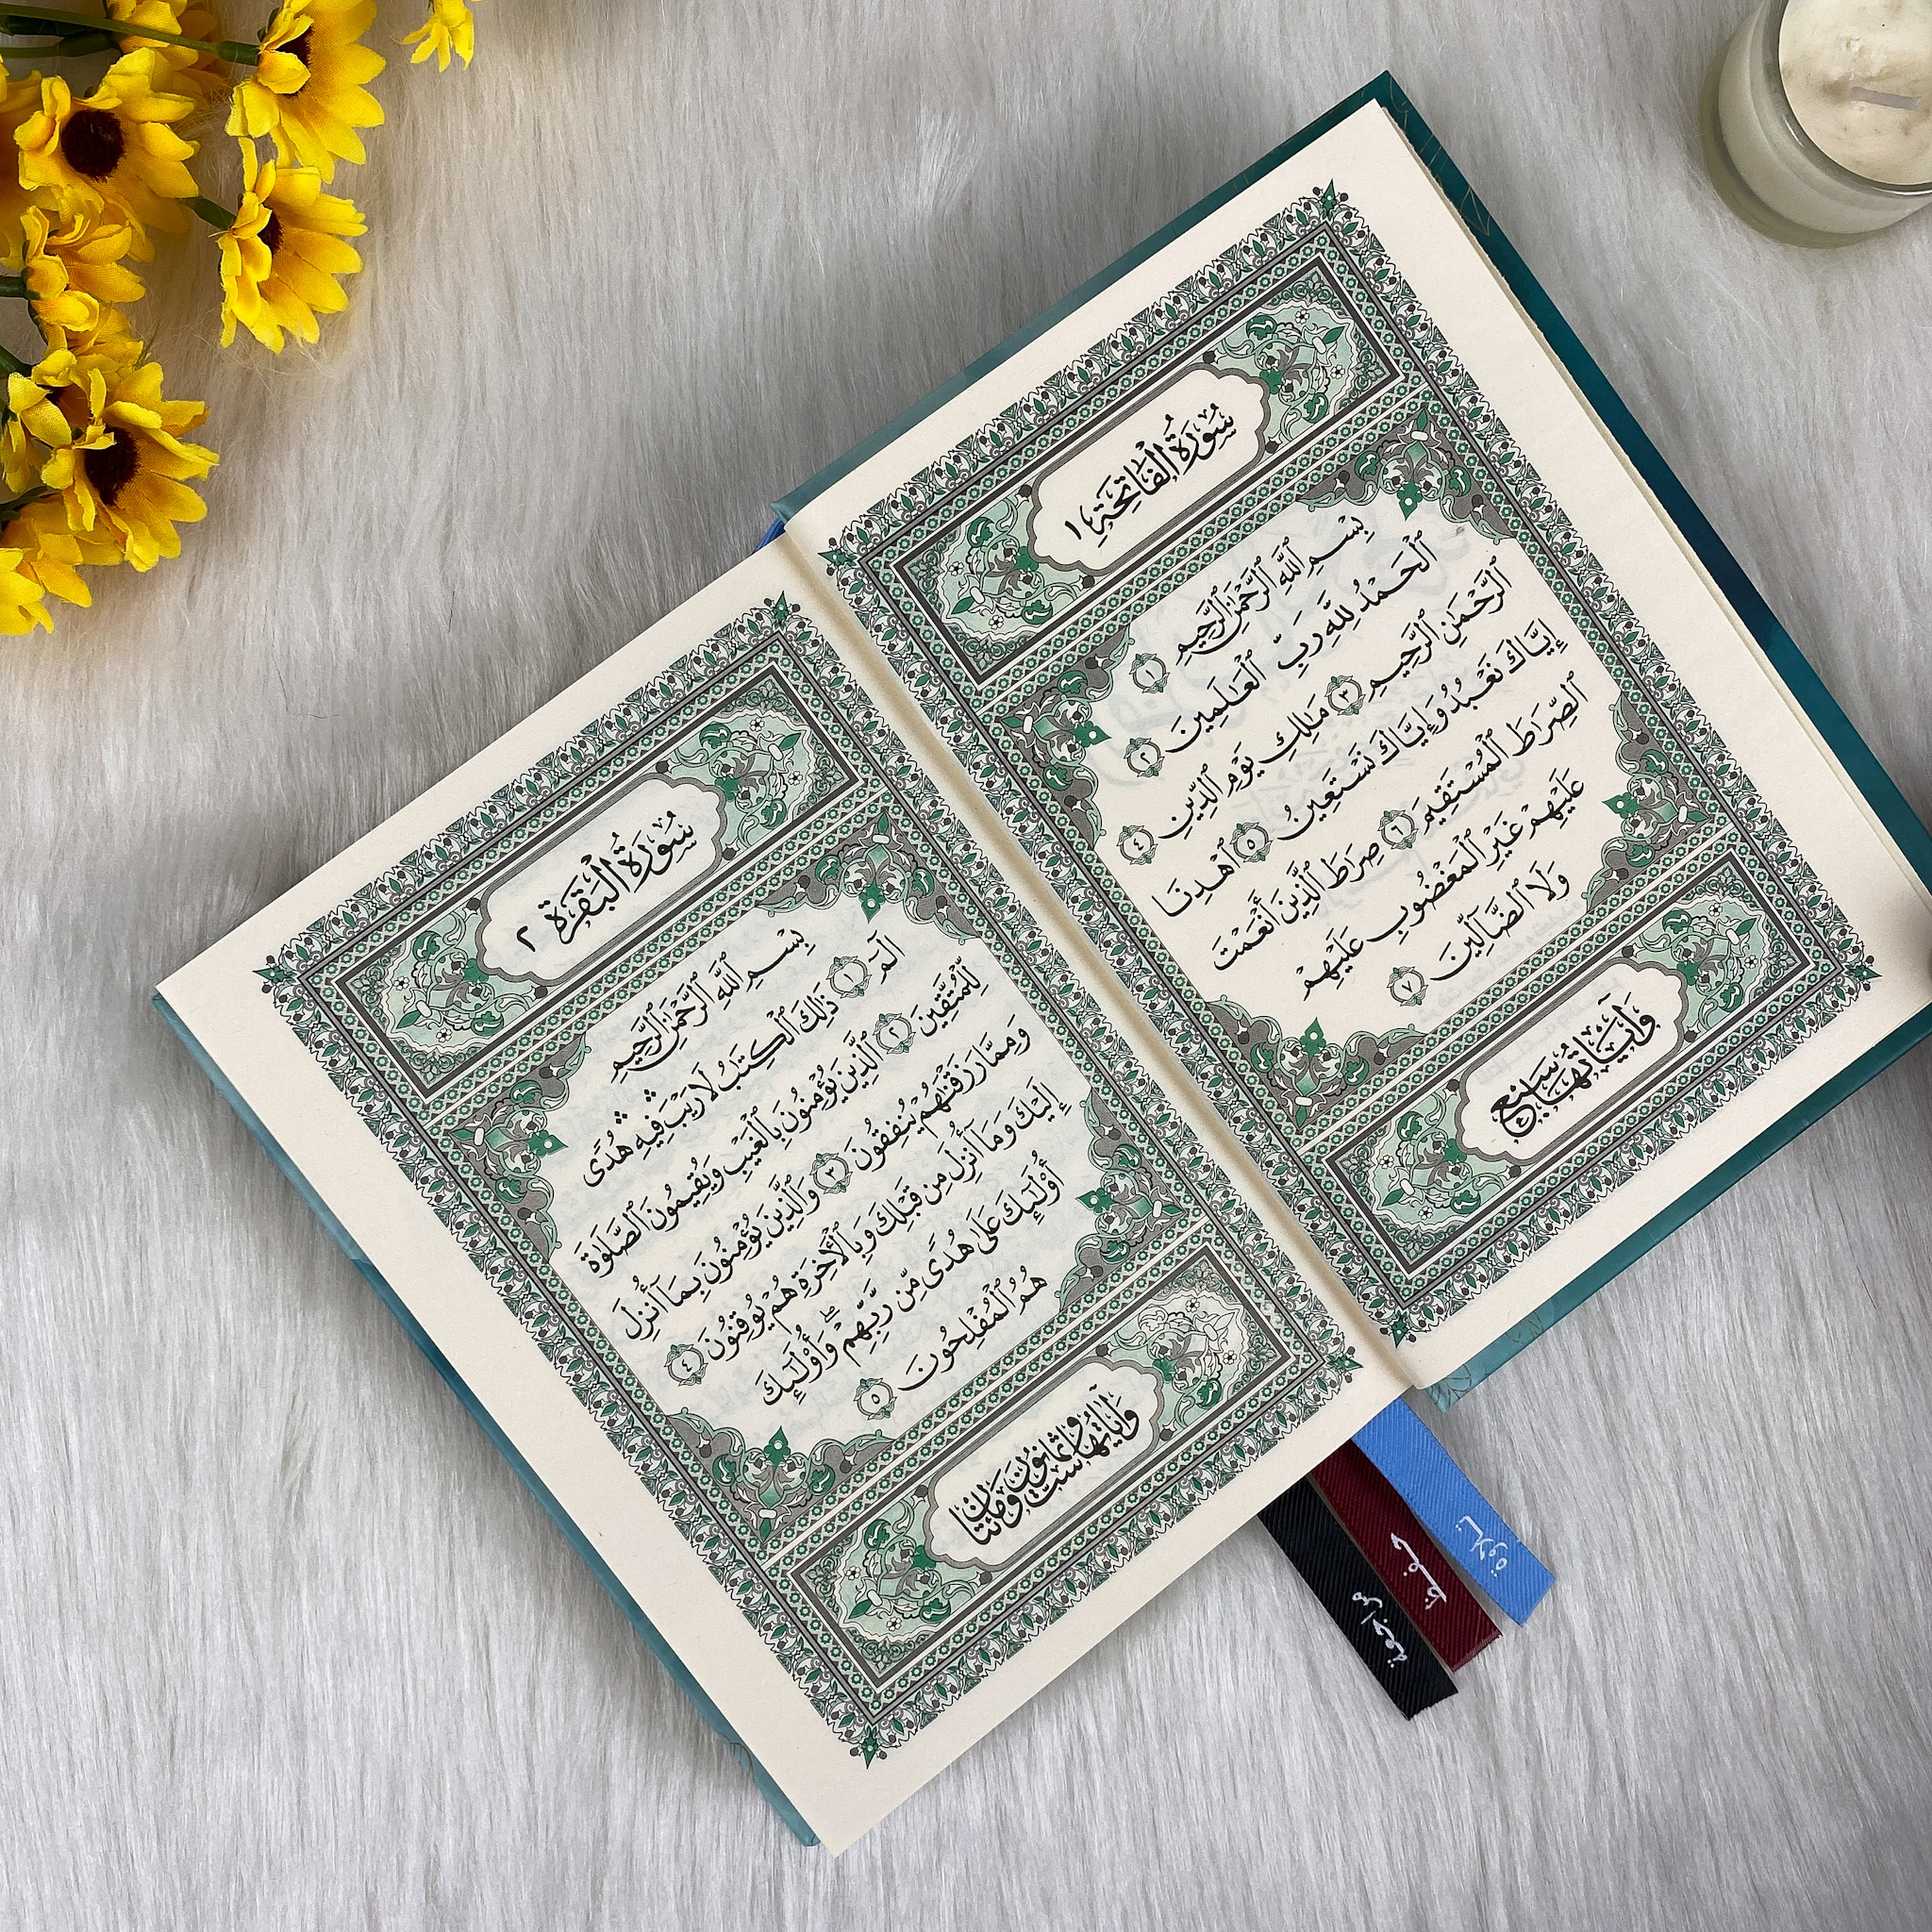 سُورَةُ الْفَاتِحَةِ ١
بِسْمِ ٱللَّهِ ٱلرَّحْمَٰنِ ٱلرَّحِيمِ ١
ٱلْحَمْدُ لِلَّهِ رَبِّ ٱلْعَٰلَمِينَ ٢
ٱلرَّحْمَٰنِ ٱلرَّحِيمِ ٣ مَٰلِكِ يَوْمِ ٱلدِّينِ ٤
إِيَّاكَ نَعْبُدُ وَإِيَّاكَ نَسْتَعِينُ ٥ ٱهْدِنَا
ٱلصِّرَٰطَ ٱلْمُسْتَقِيمَ ٦ صِرَٰطَ ٱلَّذِينَ أَنْعَمْتَ
عَلَيْهِمْ غَيْرِ ٱلْمَغْضُوبِ عَلَيْهِمْ
وَلَا ٱلضَّآلِّينَ ٧
وَآيَاتُهَا سَبْعٌ
سُورَةُ الْبَقَرَةِ ٢
بِسْمِ ٱللَّهِ ٱلرَّحْمَٰنِ ٱلرَّحِيمِ
الٓمٓ ١ ذَٰلِكَ ٱلْكِتَٰبُ لَا رَيْبَ ۛ فِيهِ ۛ هُدًى
لِّلْمُتَّقِينَ ٢ ٱلَّذِينَ يُؤْمِنُونَ بِٱلْغَيْبِ وَيُقِيمُونَ ٱلصَّلَوٰةَ
وَمِمَّا رَزَقْنَٰهُمْ يُنفِقُونَ ٣ وَٱلَّذِينَ يُؤْمِنُونَ بِمَآ أُنزِلَ
إِلَيْكَ وَمَآ أُنزِلَ مِن قَبْلِكَ وَبِٱلْأٓخِرَةِ هُمْ يُوقِنُونَ ٤
أُو۟لَٰٓئِكَ عَلَىٰ هُدًى مِّن رَّبِّهِمْ ۖ وَأُو۟لَٰٓئِكَ
هُمُ ٱلْمُفْلِحُونَ ٥
وَآيَاتُهَا سِتٌّ وَثَمَانُونَ وَمِائَتَانِ
تلاوة
حفظ
مراجعة